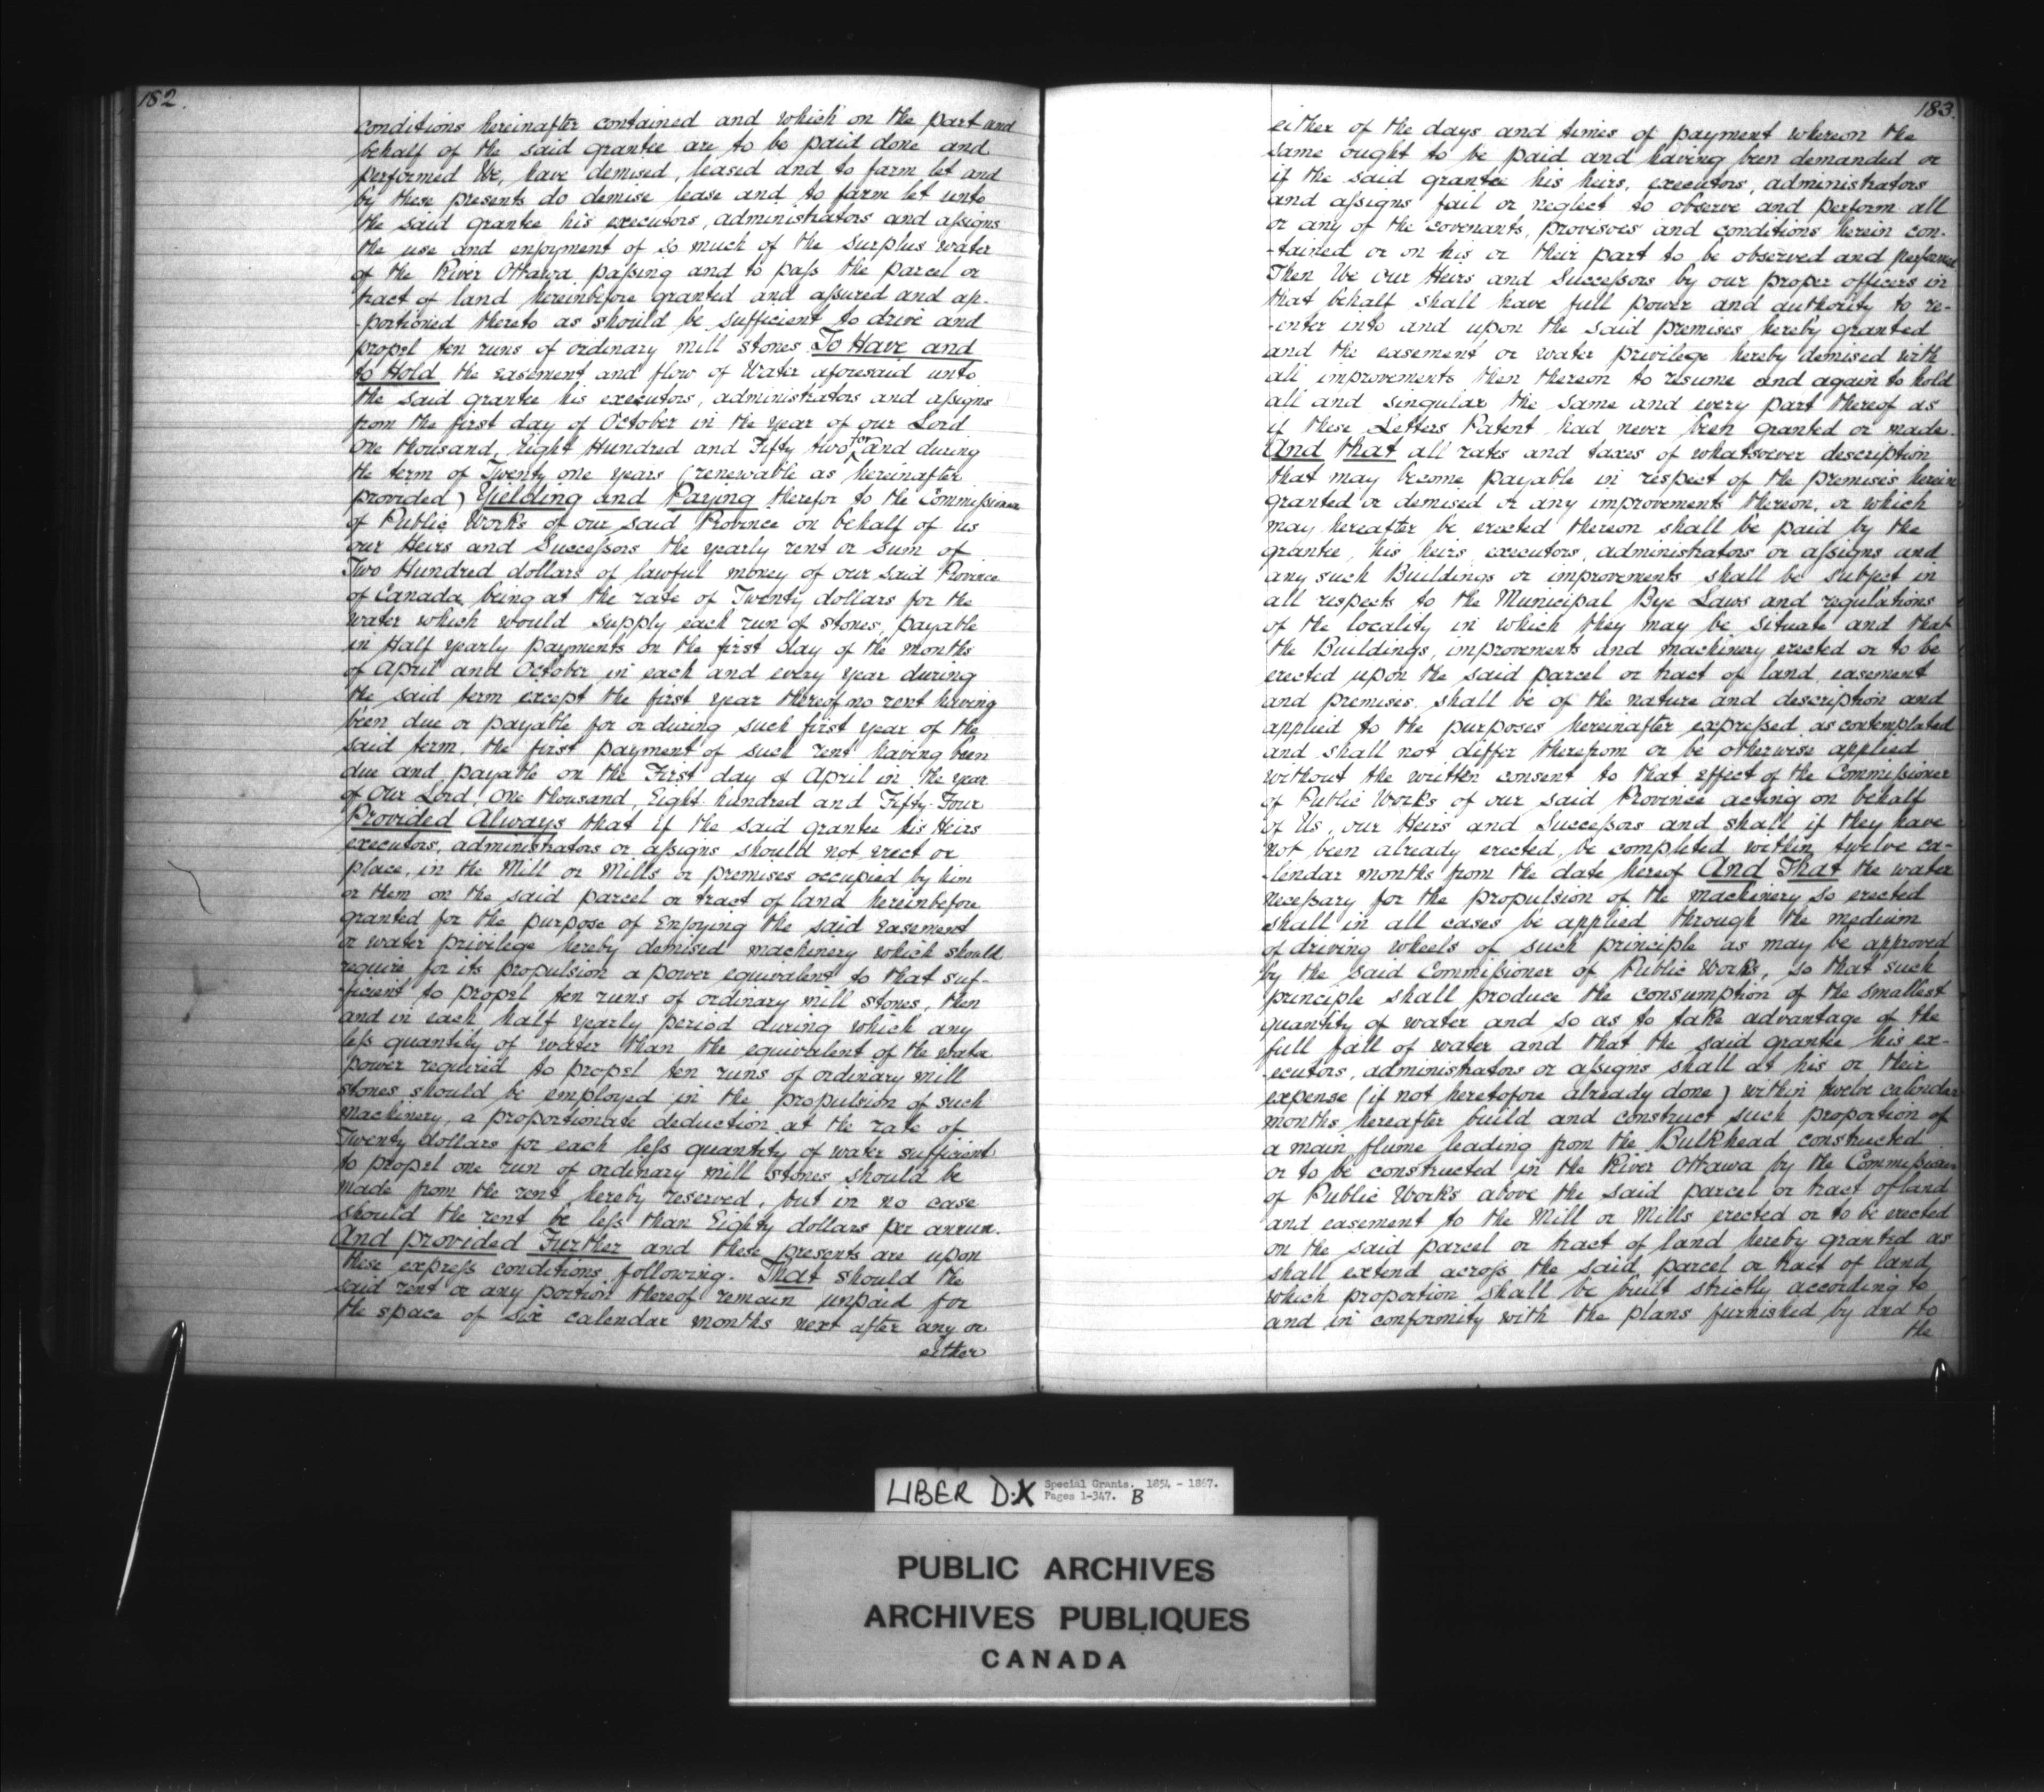 182.
conditions hereinafter contained and which on the part and
behalf of the said grantee are to be paid done and
performed We, have demised, leased and to farm let and
by these presents do demise lease and to farm let unto
the said grantee his executors, administrators and assigns
the use and enjoyment of so much of the surplus water
of the River Ottawa passing and to pass the parcel or
tract of land hereinbefore granted and assured and ap-
-portioned thereto as should be sufficient to drive and
propel ten runs of ordinary mill stones To Have and
to Hold the easement and flow of Water aforesaid unto
the said grantee his executors, administrators and assigns
from the first day of October in the year of our Lord
One thousand, Eight Hundred and Fifty two for and during
the term of Twenty one years (renewable as hereinafter
provided) Yielding and Paying therefor to the Commissioner
of Public Works of our said Province on behalf of us
our Heirs and Successors the yearly rent or sum of
Two Hundred dollars of lawful money of our said Province
of Canada, being at the rate of Twenty dollars for the
water which would supply each run of stones, payable
in Half yearly payments on the first day of the months
of April and October in each and every year during
the said term except the first year thereof no rent having
been due or payable for or during such first year of the
said term, the first payment of such rent having been
due and payable on the First day of April in the year
of Our Lord, One thousand, Eight hundred and Fifty Four
Provided Always that if the said grantee his Heirs
executors, administrators or assigns should not erect or
place, in the Mill or Mills or premises occupied by him
or them on the said parcel or tract of land hereinbefore
granted for the purpose of Enjoying the said easement
or water privilege hereby demised machinery which should
require for its propulsion a power equivalent to that suf-
-ficient to propel ten runs of ordinary mill stones, then
and in each half yearly period during which any
less quantity of water than the equivalent of the water
power required to propel ten runs of ordinary mill
stones should be employed in the propulsion of such
machinery, a proportionate deduction at the rate of
Twenty dollars for each less quantity of water sufficient
to propel one run of ordinary mill stones should be
made from the rent hereby reserved, but in no case
should the rent be less than Eighty dollars per annum.
And provided Further and these presents are upon
these express conditions following. That should the
said rent or any portion thereof remain unpaid for
the space of six calendar months next after any or
either
183.
either of the days and times of payment whereon the
same ought to be paid and having been demanded or
if the said grantee his heirs, executors, administrators
and assigns fail or neglect to observe and perform all
or any of the covenants, provisoes and conditions herein con-
-tained or on his or their part to be observed and performed
Then We our Heirs and Successors by our proper officers in
that behalf shall have full power and authority to re-
-enter into and upon the said premises hereby granted
and the easement or water privilege hereby demised with
all improvements then thereon to resume and again to hold
all and singular the same and every part thereof as
if these Letters Patent had never been granted or made.
And that all rates and taxes of whatsoever description
that may become payable in respect of the premises herein
granted or demised or any improvements thereon, or which
may hereafter be erected thereon shall be paid by the
grantee, his heirs, executors, administrators or assigns and
any such Buildings or improvements shall be subject in
all respects to the Municipal Bye Laws and regulations
of the locality in which they may be situate and that
the Buildings, improvements and machinery erected or to be
erected upon the said parcel or tract of land, easement
and premises, shall be of the nature and description and
applied to the purposes hereinafter expressed as contemplated
and shall not differ therefrom or be otherwise applied
without the written consent to that effect of the Commissioner
of Public Works of our said Province acting on behalf
of Us, our Heirs and Successors and shall if they have
not been already erected, be completed within twelve ca-
-lendar months from the date hereof And That the water
necessary for the propulsion of the machinery so erected
shall in all cases be applied through the medium
of driving wheels of such principle as may be approved
by the said Commissioner of Public Works, so that such
principle shall produce the consumption of the smallest
quantity of water and so as to take advantage of the
full fall of water and that the said grantee his ex-
-ecutors, administrators or assigns shall at his or their
expense (if not heretofore already done) within twelve calendar
months hereafter build and construct such proportion of
a main flume leading from the Bulkhead constructed
or to be constructed in the River Ottawa by the Commissioner
of Public Works above the said parcel or tract of land
and easement to the Mill or Mills erected or to be erected
on the said parcel or tract of land hereby granted as
shall extend across the said parcel or tract of land,
which proportion shall be built strictly according to
and in conformity with the plans furnished by and to
the
LIBER D.X Special Grants. 1854 - 1867.
Pages 1-347. B
PUBLIC ARCHIVES
ARCHIVES PUBLIQUES
CANADA